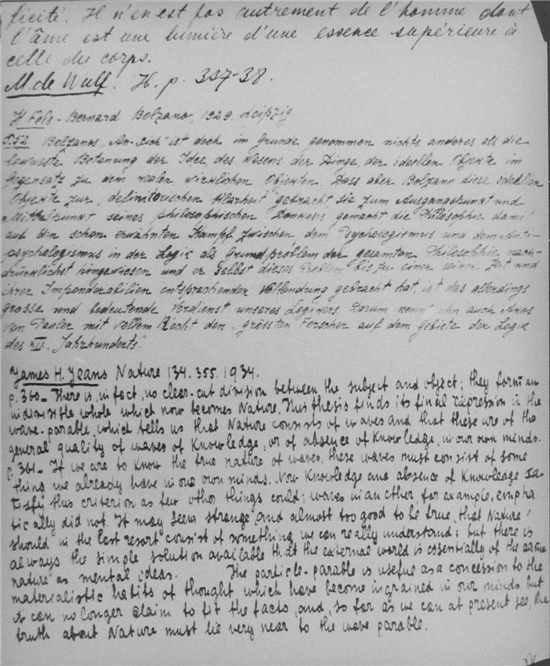 ficité. Il n'en est pas autrement de l'homme dont
l'âme est une lumière d'une essence supérieure à
celle du corps.
M. de Wulf. H. p. 337-38.
H Fels - Bernard Bolzano, 1929. Leipzig
Bolzanos "An-sich" ist doch im Grunde genommen nichts anderes als die
bewusste Betonung der Idee des Wesens der Dinge, der ideellen Objekte im
Gegensatz zu dem realen wirklichen Objekten. Dass aber Bolzano diese idealen
Objekte zur "definitorischen Klarheit" gebracht sie zum Ausgangspunkt und
Mittelpunkt seines philosophischen Denkens gemacht die Philosophie damit
auf den schon erwähnten Kampf zwischen dem Psychologismus und dem Anti-
psychologismus in der Logik als Grundproblem der gesamten Philosophie nach-
drücklichst hingewiesen und er selbst dieses Problem bis zu einer seiner Zeit und
ihrer Imponderabilien entsprechenden Vollendung gebracht hat ist das allerdings
grosse und bedeutende Verdienst unseres Logikers. Darum nennt ihn auch
von Pauler mit vollem Recht den "grössten Forscher auf dem Gebiete der Logik
des Jahrhunderts"
James H. Jeans Nature 134. 355. 1934.
p. 360- There is, in fact, no clear-cut division between the subject and object; they form an
indivisible whole which now becomes Nature. This thesis finds its final expression in the
wave-parable, which tells us that Nature consists of waves and that these are of the
general quality of waves of Knowledge, or of absence of Knowledge, in our own minds.
p. 361- If we are to know the true nature of waves, these waves must consist of some
thing we already have in our own minds. Now Knowledge and absence of Knowledge sa-
tisfy this criterion as few other things could; waves in an ether, for example, empha
tically did not. It may seem strange, and almost too good to be true, that Nature
should in the last resort consist of something we can really understand; but there is
always the simple solution available that the external world is essentially of the same
nature as mental ideas. The particle-parable is useful as a concession to the
materialistic habits of thought which have become ingrained in our minds, but
it can no longer claim to fit the facts, and, so far as we can at present see, the
truth about Nature must lie very near to the wave parable.